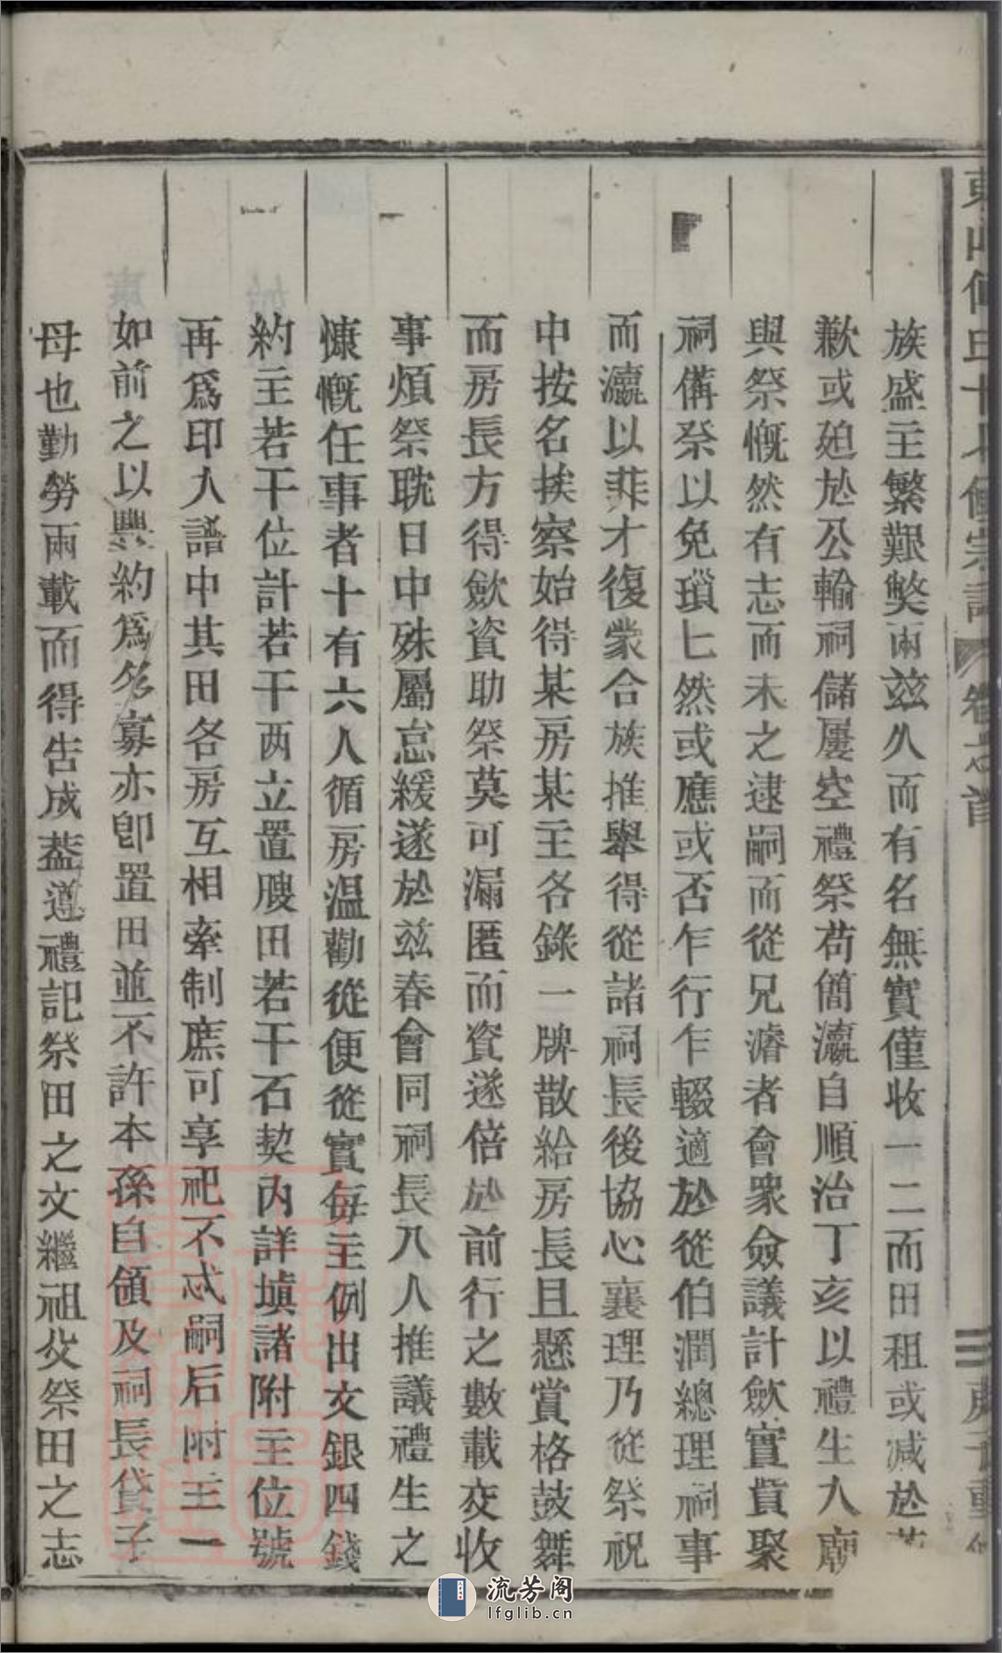 族盛主繁艱獘兩兹久而有名無實僅收一二而田租或減於
歉或廹於公輸祠儲屢空禮祭苟簡瀛自順治丁亥以禮生入廟
與祭慨然有志而未之逮嗣而從兄濬者會衆僉議計歛實貲聚
祠備祭以免瑣匕然或應或否乍行乍輟適於從伯潤總理祠事
而瀛以菲才復蒙合族推舉得從諸祠長後協心襄理乃從祭祝
中按名挨察始得某房某主各錄一牌散給房長且懸賞格鼓舞
而房長方得歛資助祭莫可漏匿而資遂倍於前行之數載交收
事煩祭耽日中殊屬怠緩遂於兹春會同祠長八人推議禮生之
慷慨任事者十有六人循房温勸從便從實每主例出文銀四錢
約主若干位計若干两立置腴田若干石契内詳填諸附主位號
再爲印入譜中其田各房互相牽制庶可享祀不忒嗣后附主一
如前之以興約爲多寡亦卽置田並不許本孫自領及祠長貸子
母也勤勞兩載而得告成葢遵禮記祭田之文繼祖父祭田之志
卷之首
三